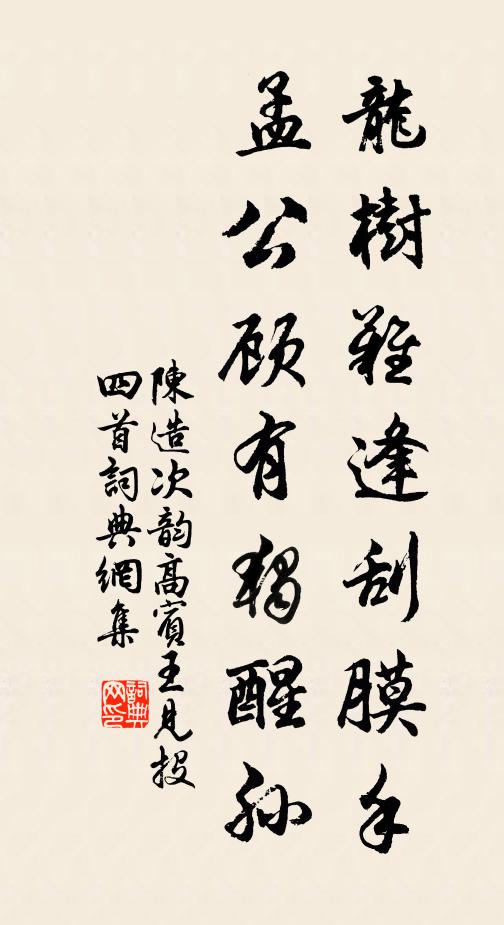 龍樹難逢刮膜手
孟公顧有獨醒孫
陳造次韵高賓王見投
四首詞典網集
詞典網印